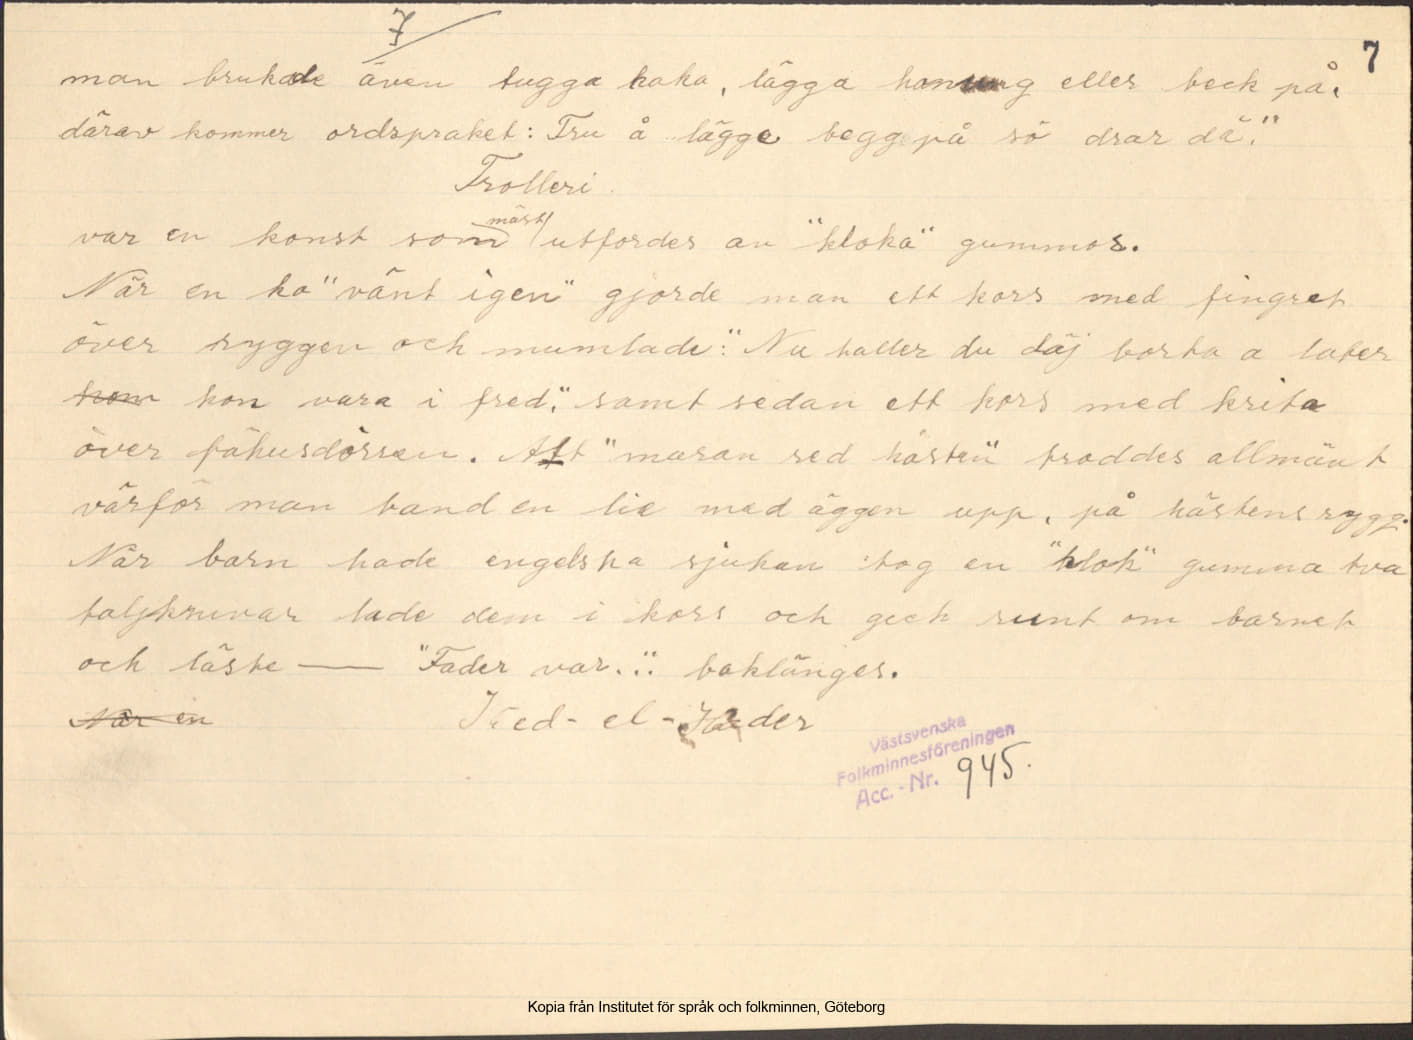 7
7
man brukade även tugga kaka, lägga honung eller beck på.
därav kommer ordspraket: Tru å lägge begg på så drar dä."
Trolleri
var en konst som mäst utfordes av "kloka" gummor.
När en ko "vänt igen" gjorde man ett kors med fingret
över ryggen och mumlade: "Nu haller du däj borta a later
kon vara i fred", samt sedan ett kors med krita
över fähusdörren. Att "maran red hästen" troddes allmänt
värför man band en lie med äggen upp, på hästens rygg.
När barn hade engelska sjukan tog en "klok" gumma tva
taljknivar lade dem i kors och geck runt om barnet
och läste — "Fader var..." baklänges.
När en
-el-
Västsvenska
Folkminnesföreningen
Acc.-Nr. 945.
Kopia från Institutet för språk och folkminnen, Göteborg